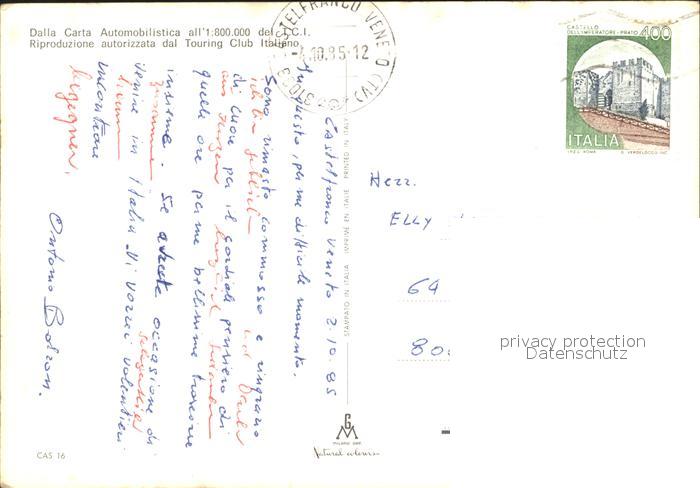 Dalla Carta Automobilistica all'1:800.000 del T.C.I.
Riproduzione autorizzata dal Touring Club Italiano
CASTELFRANCO VENETO
10.85-12
(TV)
CASTELLO
DELL'IMPERATORE-PRATO
400
ITALIA
I.P.Z.S. ROMA
Castelfranco Veneto 2.10.85
In questo, per me difficile momento.
Sono rimasto commosso e ringrazio
ich bin
di cuore per il gordiale pensiero di
aus
quelle ore per me bellissime trascorse
insieme. Se avrete occasione di
zusammen
venire in Italia Vi vorrei volentieri
incontrare
begegnen.
Antonio
STAMPATO IN ITALIA IMPRIMÉ EN ITALIE PRINTED IN ITALY
Herr.
ELLY
64
80
privacy protection
Datenschutz
GM
MILANO
Natural colours
CAS 16